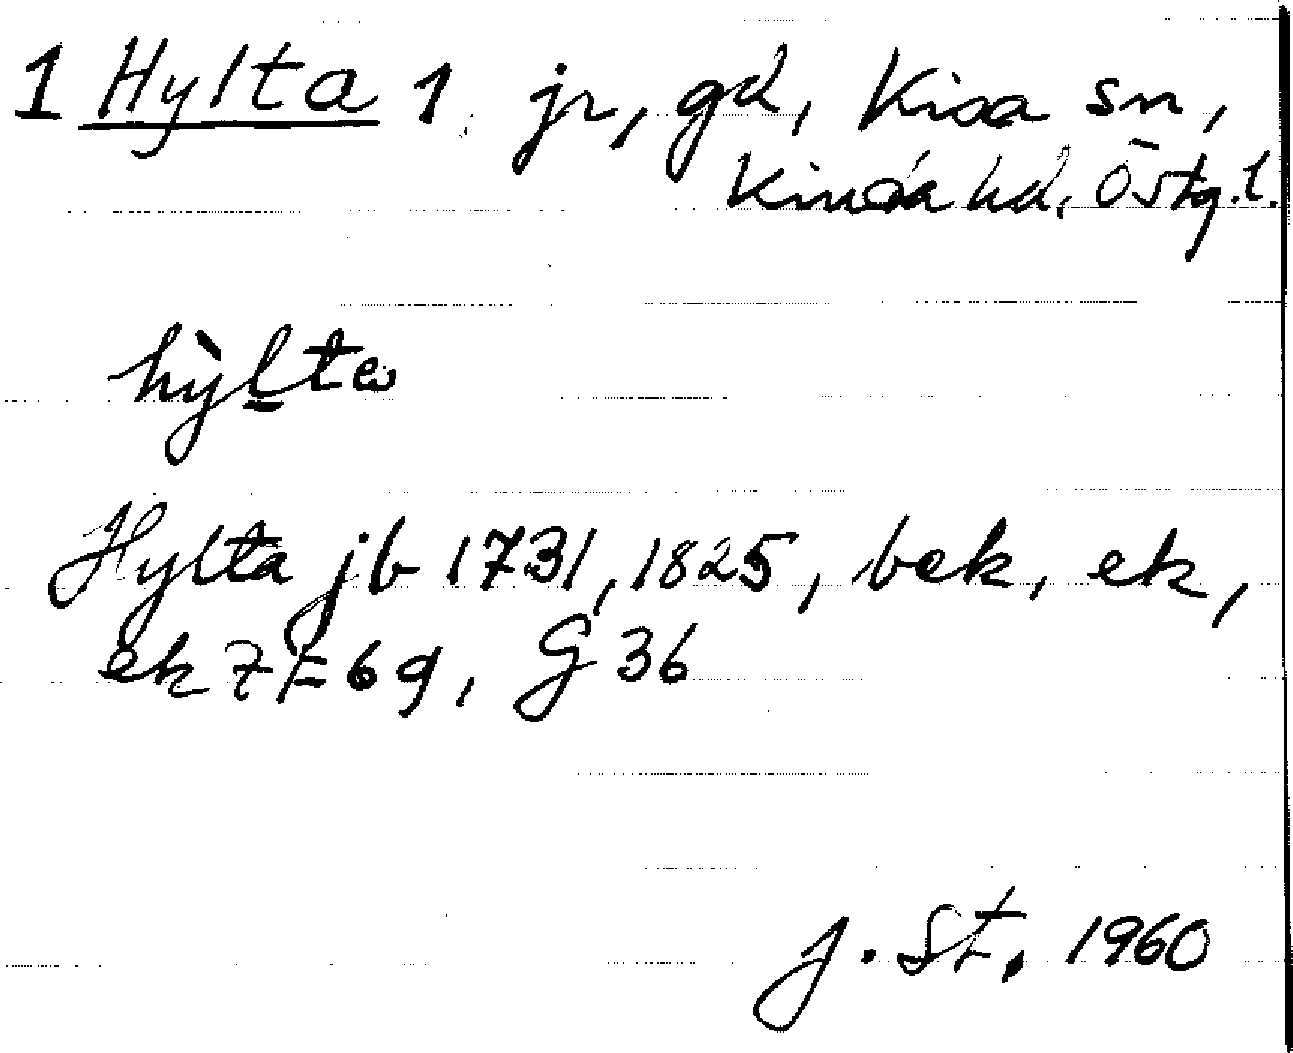 1 Hylta 1 jr, gd, Kisa sn,
Kinda hd, Östg.l.
hỳlta
Hylta jb 1731, 1825, bek, ek,
ek 7 F 6 g, G 36
J. St. 1960